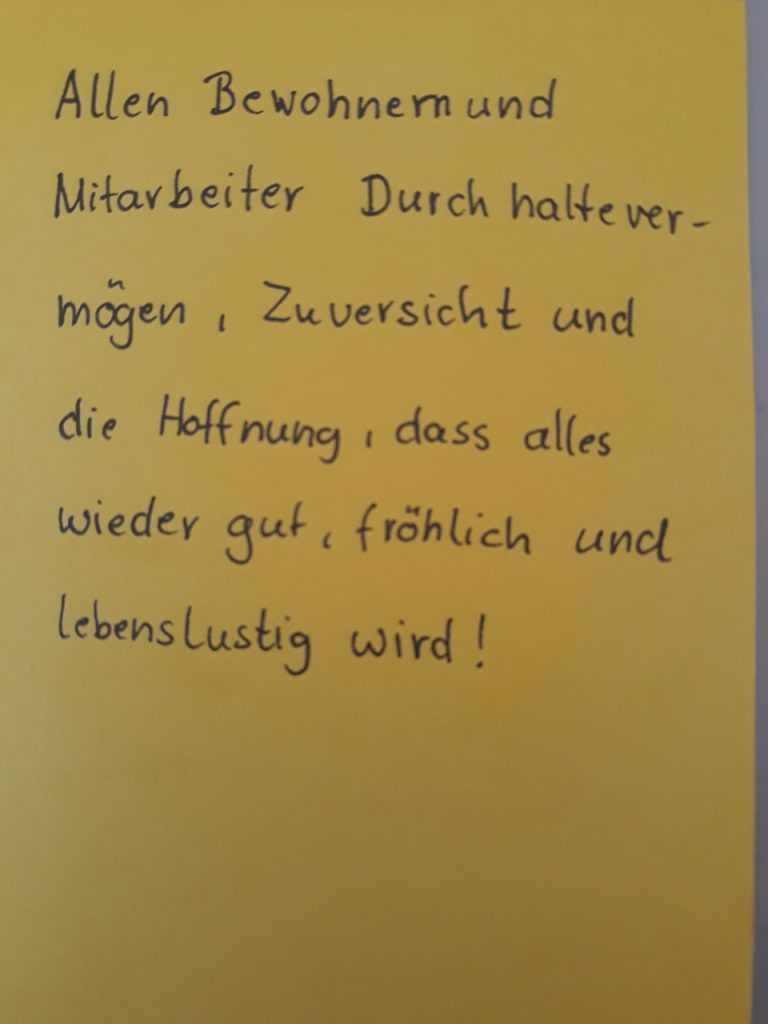 Allen Bewohnern und
Mitarbeiter Durchhaltever-
mögen, Zuversicht und
die Hoffnung, dass alles
wieder gut, fröhlich und
lebenslustig wird!